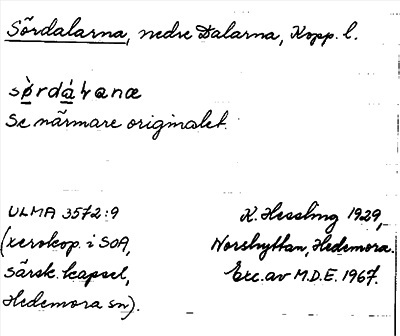 Sördalarna, nedre Dalarna, Kopp. l.
sø̀rdáɫanæ
Se närmare originalet.
ULMA 3572:9
(xerokop. i SOA,
särsk. kapsel,
Hedemora sn).
K. Hessling 1929,
Norshyttan, Hedemora.
Exc. av M.D.E. 1967.